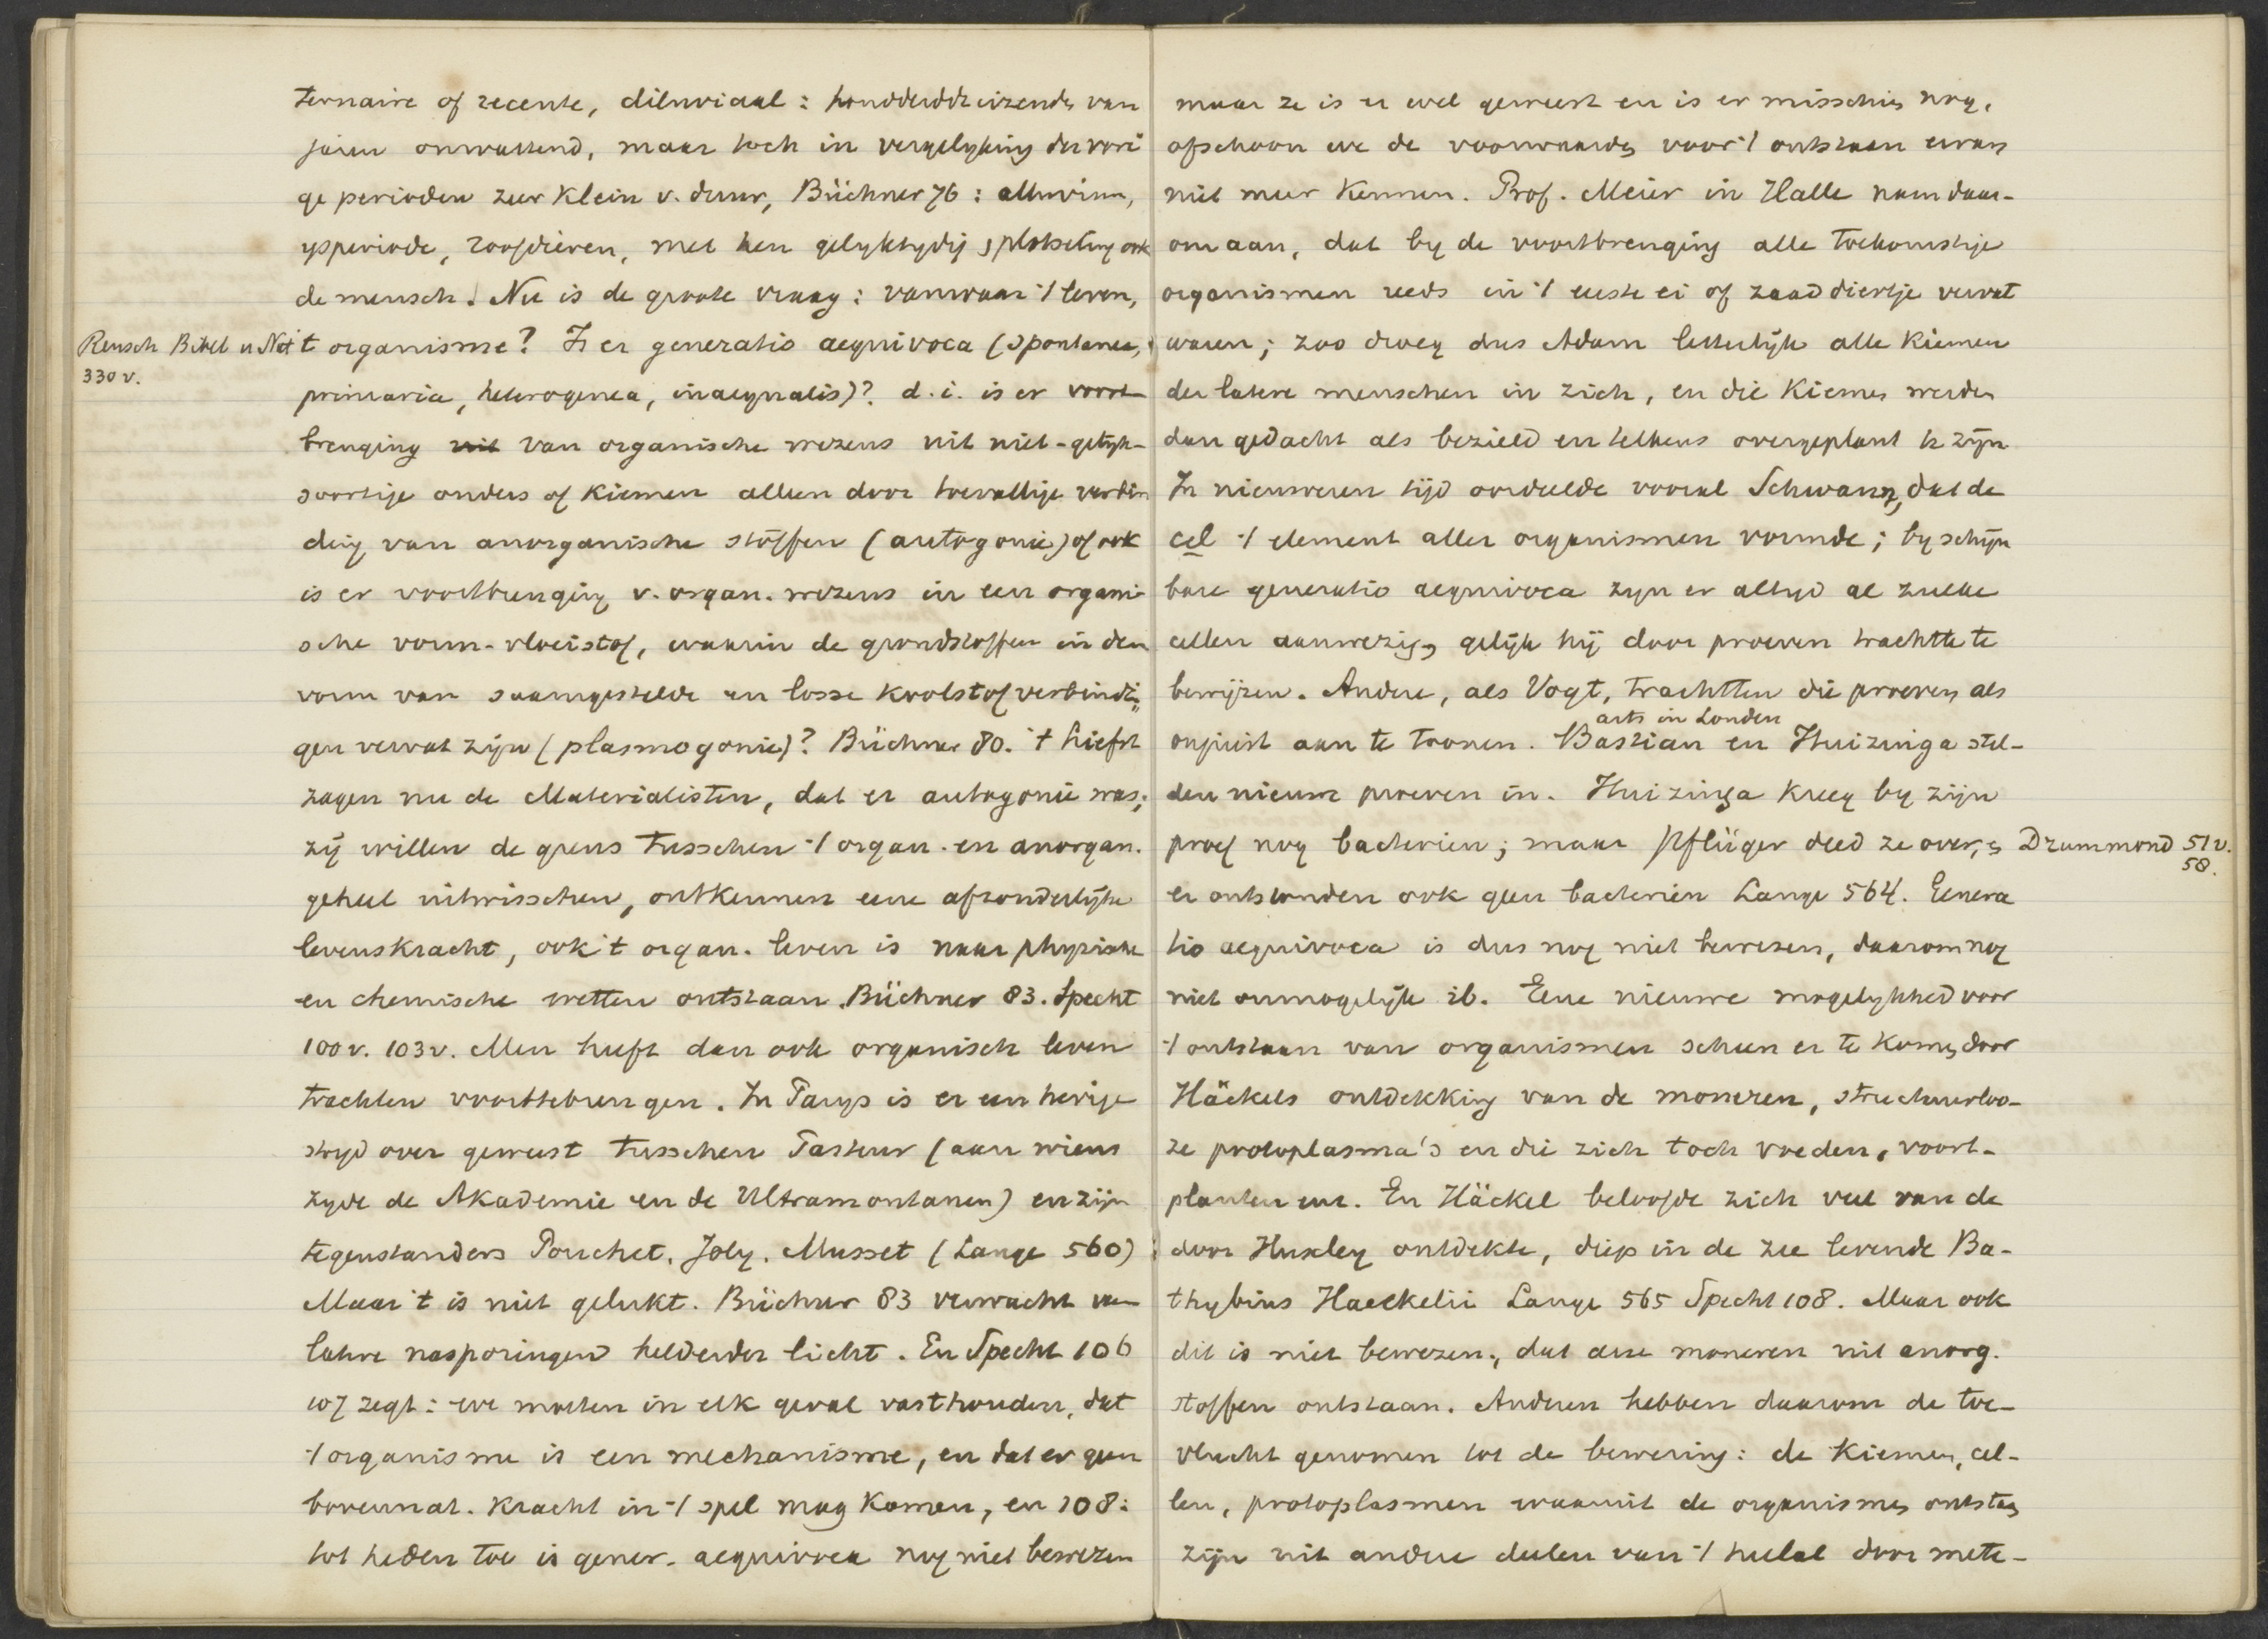 ternaire of recente, diluviaal: honderdduizenden van
jaren omvattend, maar toch in vergelyking der vori
ge perioden zeer klein v. duur, Büchner 76: alluvium,
ysperiode, zoogdieren, met hen gelyktydig, plotseling ook
de mensch. Nu is de groote vraag: vanwaar 't leven,
Reusch Bibel u Nat
330 v.
't organisme? Is er generatio aequivoca (spontanea,
primaria, heterogenea, inaequalis)? d.i. is er voort
brenging van organische wezens uit niet-gelijk-
soortige ouders of kiemen alleen door toevallige verbin
ding van anorganische stoffen (autogonie) of ook
is er voortbrenging v. organ. wezens in een organi
sche vorm-vloeistof, waarin de grondstoffen in den
vorm van saamgestelde en losse koolstofverbindin
gen vervat zijn (plasmogonie)? Büchner 80. 't liefst
zagen nu de Materialisten, dat er autogonie was;
zij willen de grens tusschen 't organ. en anorgan.
geheel uitwisschen, ontkennen eene afzonderlijke
levenskracht, ook 't organ. leven is naar physische
en chemische wetten ontstaan. Büchner 83. Specht
100 v. 103 v. Men heeft dan ook organisch leven
trachten voorttebrengen. In Parys is er een hevige
stryd over geweest tusschen Pasteur (aan wiens
zyde de Akademie en de Ultramontanen) en zijn
tegenstanders Pouchet, Joly, Musset (Lange 560)
Maar 't is niet gelukt. Büchner 83 verwacht van
latere nasporingen helderder licht. En Specht 106
107 zegt: we moeten in elk geval vasthouden, dat
't organisme is een mechanisme, en dat er geen
bovennat. kracht in 't spel mag komen, en 108:
tot heden toe is gener. aequivoca nog niet bewezen
maar ze is er wel geweest en is er misschien nog,
ofschoon we de voorwaarden voor 't ontstaan ervan
niet meer kennen. Prof. Meier in Halle nam daar-
om aan, dat by de voortbrenging alle toekomstige
organismen reeds in 't eerste ei of zaaddiertje vervat
waren; zoo droeg dus Adam letterlijk alle kiemen
der latere menschen in zich, en die kiemen werden
dan gedacht als bezield en telkens overgeplant te zijn
In nieuweren tijd oordeelde vooral Schwann, dat de
cel 't element aller organismen vormde; by schijn
bare generatio aequivoca zyn er altyd al zulke
cellen aanwezig, gelijk hij door proeven trachtte te
bewijzen. Andere, als Vogt, trachtten die proeven als
onjuist aan te toonen. Bastian en Huizinga stel-
arts in Londen
den nieuwe proeven in. Huizinga kreeg by zijn
proef nog bacteriën; maar Pflüger deed ze over, en
Drummond 51 v.
58.
er ontstonden ook geen bacteriën Lange 564. Genera
tio aequivoca is dus nog niet bewezen, daarom nog
niet onmogelijk ib. Eene nieuwe mogelykheid voor
't ontstaan van organismen scheen er te komen door
Häckels ontdekking van de moneren, structuurloo-
ze protoplasma's en die zich toch voeden, voort-
planten enz. En Häckel beloofde zich veel van de
door Huxley ontdekte, diep in de zee levende Ba-
thybius Haeckelii Lange 565 Specht 108. Maar ook
dit is niet bewezen, dat deze moneren uit anorg.
stoffen ontstaan. Anderen hebben daarom de toe-
vlucht genomen tot de bewering: de kiemen, cel-
len, protoplasmen waaruit de organismen ontstaan
zijn uit andere deelen van 't heelal door mete-